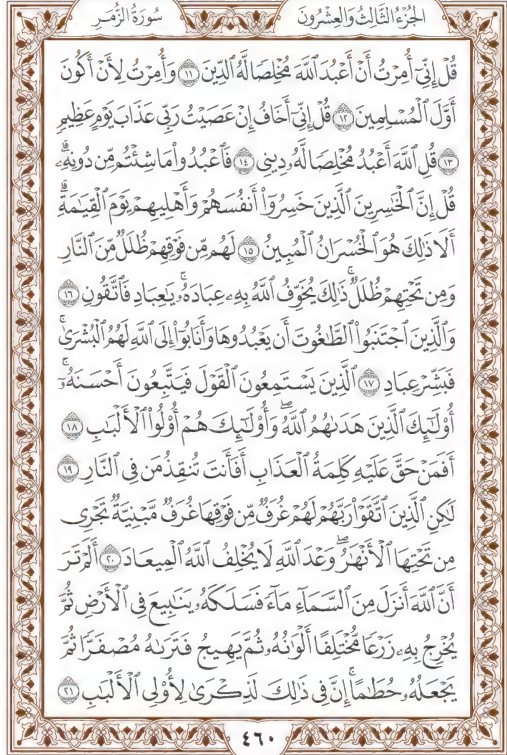 الجُزْءُ الثَّالِثُ وَالعِشْرُونَ
سُورَةُ الزُّمَرِ
قُلْ إِنِّيٓ أُمِرْتُ أَنْ أَعْبُدَ ٱللَّهَ مُخْلِصًا لَّهُ ٱلدِّينَ ١١ وَأُمِرْتُ لِأَنْ أَكُونَ
أَوَّلَ ٱلْمُسْلِمِينَ ١٢ قُلْ إِنِّيٓ أَخَافُ إِنْ عَصَيْتُ رَبِّي عَذَابَ يَوْمٍ عَظِيمٍ
١٣ قُلِ ٱللَّهَ أَعْبُدُ مُخْلِصًا لَّهُۥ دِينِي ١٤ فَٱعْبُدُوا۟ مَا شِئْتُم مِّن دُونِهِۦۗ
قُلْ إِنَّ ٱلْخَٰسِرِينَ ٱلَّذِينَ خَسِرُوٓا۟ أَنفُسَهُمْ وَأَهْلِيهِمْ يَوْمَ ٱلْقِيَٰمَةِۗ
أَلَا ذَٰلِكَ هُوَ ٱلْخُسْرَانُ ٱلْمُبِينُ ١٥ لَهُم مِّن فَوْقِهِمْ ظُلَلٌ مِّنَ ٱلنَّارِ
وَمِن تَحْتِهِمْ ظُلَلٌۚ ذَٰلِكَ يُخَوِّفُ ٱللَّهُ بِهِۦ عِبَادَهُۥۚ يَٰعِبَادِ فَٱتَّقُونِ ١٦
وَٱلَّذِينَ ٱجْتَنَبُوا۟ ٱلطَّٰغُوتَ أَن يَعْبُدُوهَا وَأَنَابُوٓا۟ إِلَى ٱللَّهِ لَهُمُ ٱلْبُشْرَىٰۚ
فَبَشِّرْ عِبَادِ ١٧ ٱلَّذِينَ يَسْتَمِعُونَ ٱلْقَوْلَ فَيَتَّبِعُونَ أَحْسَنَهُۥٓۚ
أُو۟لَٰٓئِكَ ٱلَّذِينَ هَدَىٰهُمُ ٱللَّهُۖ وَأُو۟لَٰٓئِكَ هُمْ أُو۟لُوا۟ ٱلْأَلْبَٰبِ ١٨
أَفَمَنْ حَقَّ عَلَيْهِ كَلِمَةُ ٱلْعَذَابِ أَفَأَنتَ تُنقِذُ مَن فِي ٱلنَّارِ ١٩
لَٰكِنِ ٱلَّذِينَ ٱتَّقَوْا۟ رَبَّهُمْ لَهُمْ غُرَفٌ مِّن فَوْقِهَا غُرَفٌ مَّبْنِيَّةٌ تَجْرِي
مِن تَحْتِهَا ٱلْأَنْهَٰرُۖ وَعْدَ ٱللَّهِ لَا يُخْلِفُ ٱللَّهُ ٱلْمِيعَادَ ٢٠ أَلَمْ تَرَ
أَنَّ ٱللَّهَ أَنزَلَ مِنَ ٱلسَّمَآءِ مَآءً فَسَلَكَهُۥ يَنَٰبِيعَ فِي ٱلْأَرْضِ ثُمَّ
يُخْرِجُ بِهِۦ زَرْعًا مُّخْتَلِفًا أَلْوَٰنُهُۥ ثُمَّ يَهِيجُ فَتَرَىٰهُ مُصْفَرًّا ثُمَّ
يَجْعَلُهُۥ حُطَٰمًاۚ إِنَّ فِي ذَٰلِكَ لَذِكْرَىٰ لِأُو۟لِي ٱلْأَلْبَٰبِ ٢١
٤٦٠